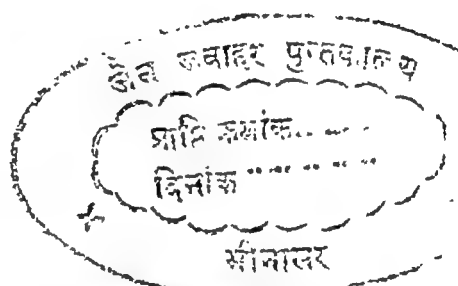 जैन जवाहर पुस्तकालय
प्राप्ति क्रमांक............
दिनांक............
भीनासर